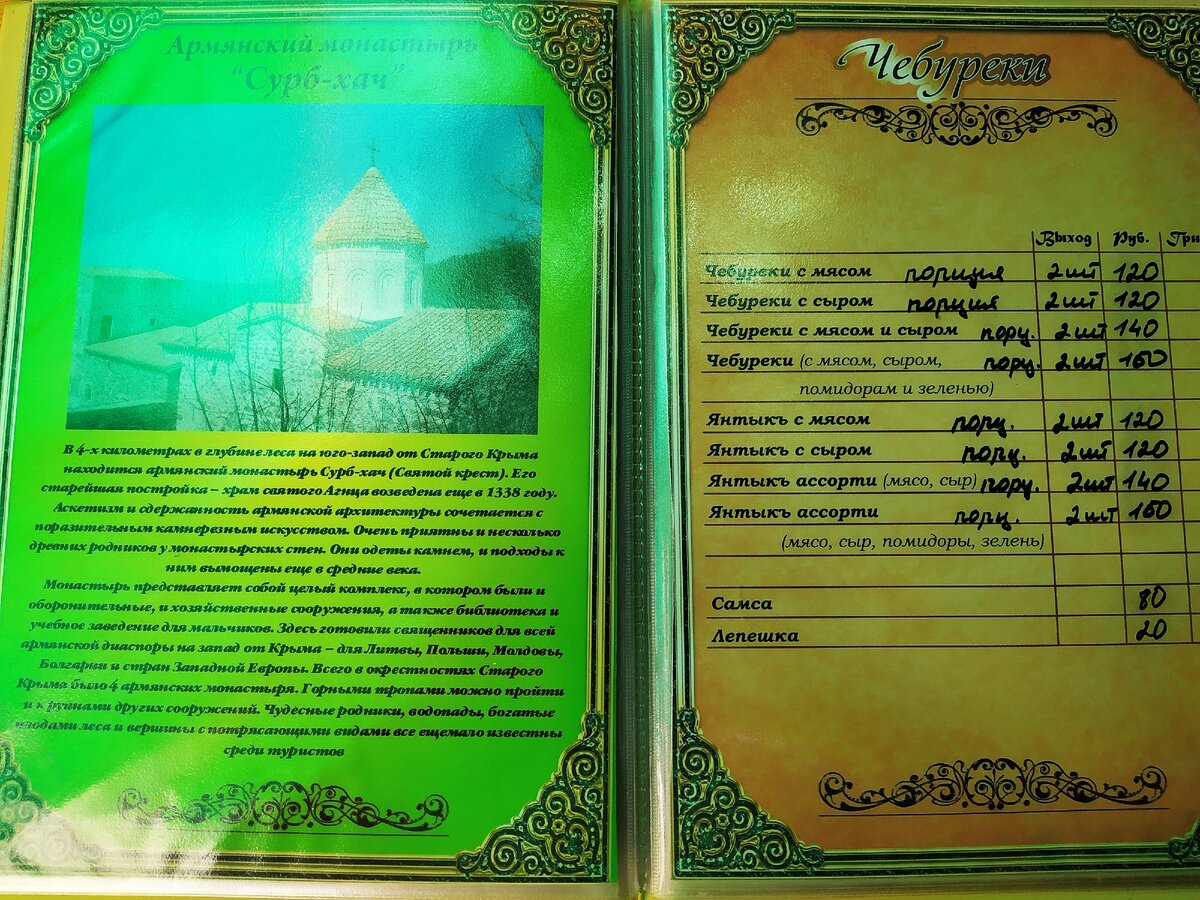 Армянский монастырь
“Сурб-хач”
В 4-х километрах в глубине леса на юго-запад от Старого Крыма
находится армянский монастырь Сурб-хач (Святой крест). Его
старейшая постройка – храм святого Агнца возведена еще в 1338 году.
Аскетизм и сдержанность армянской архитектуры сочетается с
поразительным камнерезным искусством. Очень приятны и несколько
древних родников у монастырских стен. Они одеты камнем, и подходы к
ним вымощены еще в средние века.
Монастырь представляет собой целый комплекс, в котором были и
оборонительные, и хозяйственные сооружения, а также библиотека и
учебное заведение для мальчиков. Здесь готовили священников для всей
армянской диаспоры на запад от Крыма – для Литвы, Польши, Молдовы,
Болгарии и стран Западной Европы. Всего в окрестностях Старого
Крыма было 4 армянских монастыря. Горными тропами можно пройти
и к руинами других сооружений. Чудесные родники, водопады, богатые
плодами леса и вершины с потрясающими видами все ещемало известны
среди туристов
Чебуреки
Выход Руб. Грн
Чебуреки с мясом порция 2 шт 120
Чебуреки с сыром порция 2 шт 120
Чебуреки с мясом и сыром порц. 2 шт 140
Чебуреки (с мясом, сыром, порц. 2 шт 160
помидорам и зеленью)
Янтыкъ с мясом порц. 2 шт 120
Янтыкъ с сыром порц. 2 шт 120
Янтыкъ ассорти (мясо, сыр) порц. 2 шт 140
Янтыкъ ассорти порц. 2 шт 160
(мясо, сыр, помидоры, зелень)
Самса 80
Лепешка 20